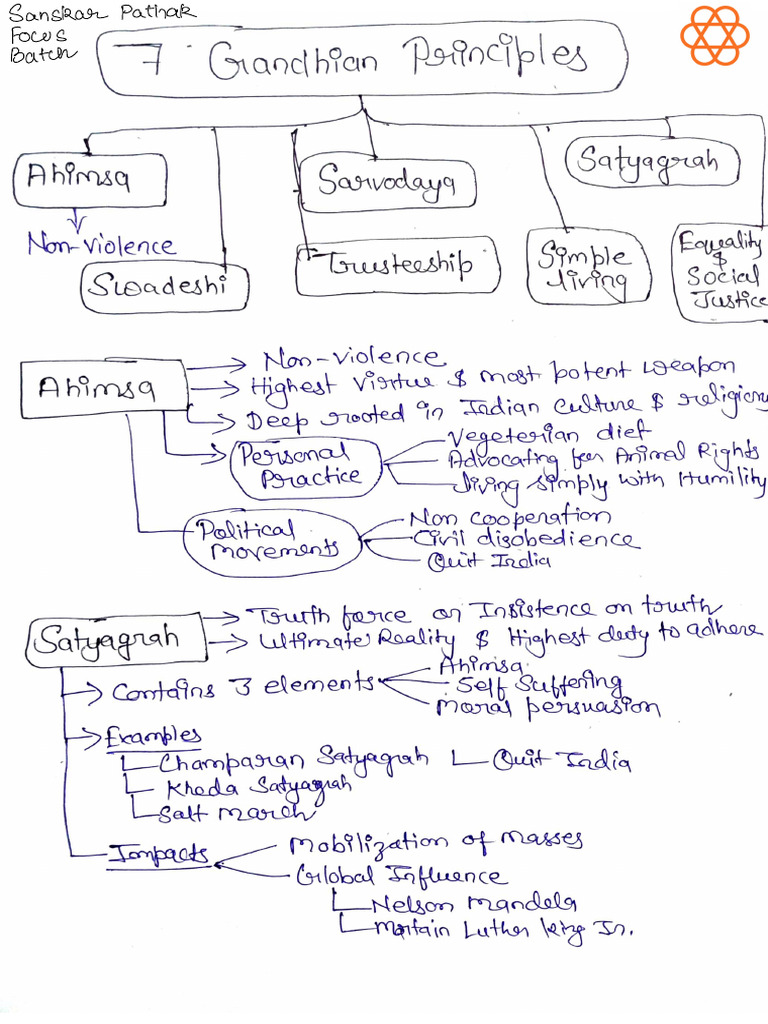 Sanskar Pathak
Focus
Batch
7 Gandhian Principles
Ahimsa
Sarvodaya
Satyagrah
Non-violence
Swadeshi
Trusteeship
Simple
living
Equality
&
Social
Justice
Ahimsa
Non-violence
Highest virtue & most potent weapon
Deep rooted in Indian culture & religions
Personal
Practice
Vegeterian diet
Advocating for Animal Rights
Living simply with Humility
Political
movements
Non cooperation
Civil disobedience
Quit India
Satyagrah
Truth force or Insistence on truth
Ultimate Reality & Highest duty to adhere
Contains 3 elements
Ahimsa
Self Suffering
Moral persuasion
Examples
Champaran Satyagrah
Quit India
Kheda Satyagrah
Salt march
Impacts
Mobilization of masses
Global Influence
Nelson Mandela
Martain Luther king Jr.